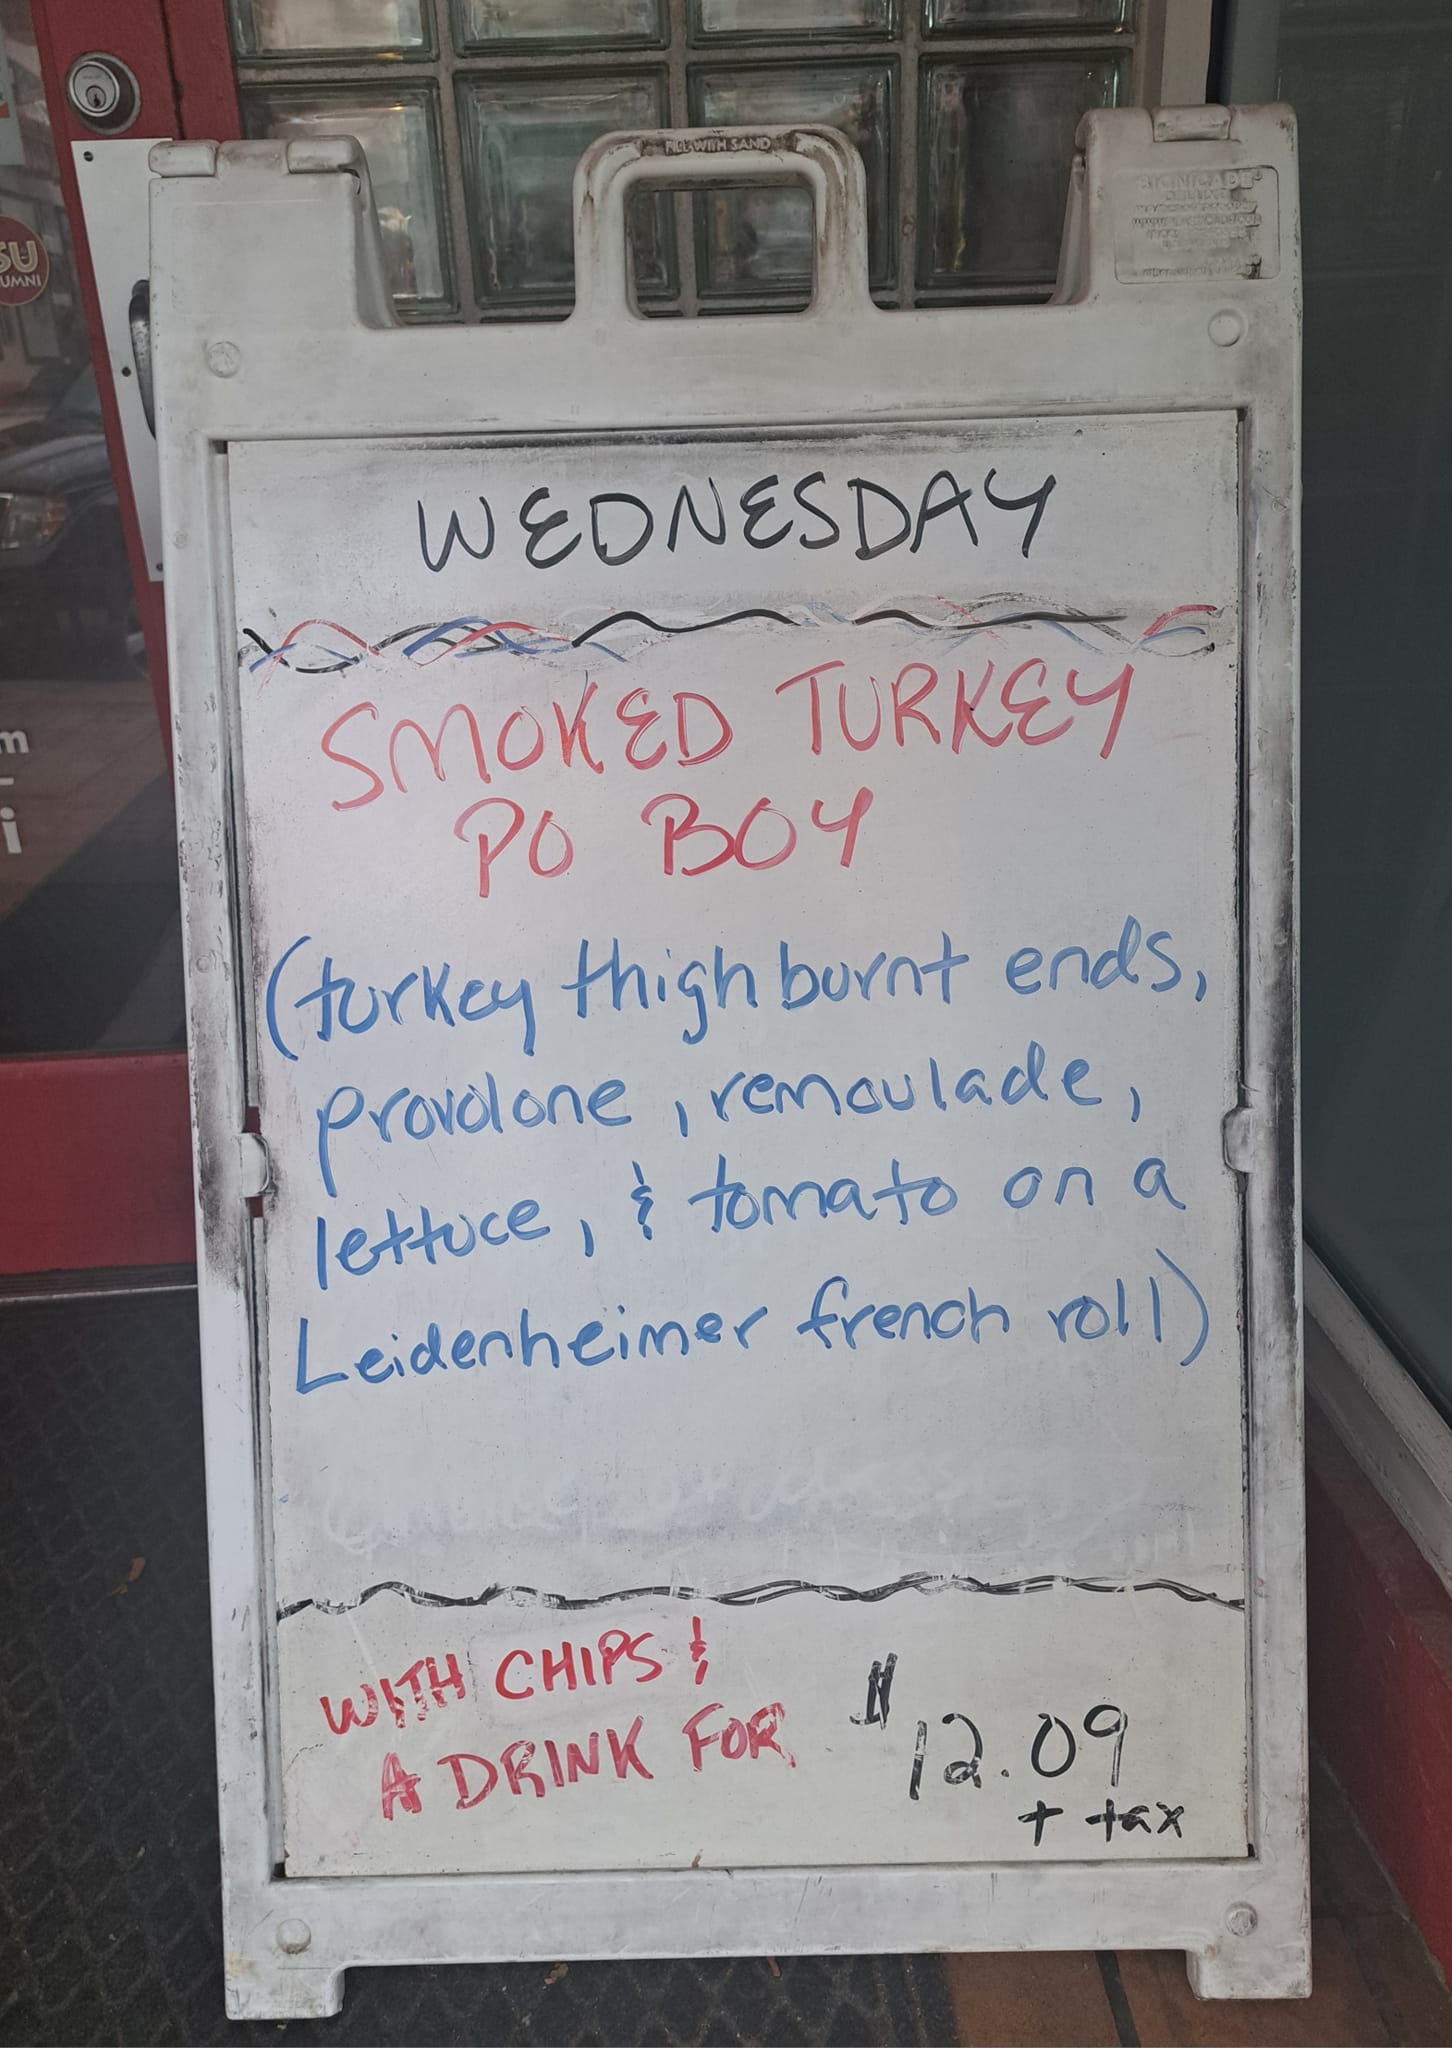 FILL WITH SAND
SU
UMNI
m
i
WEDNESDAY
SMOKED TURKEY
PO BOY
(turkey thigh burnt ends,
provolone, remoulade,
lettuce, & tomato on a
Leidenheimer french roll)
WITH CHIPS &
A DRINK FOR
$12.09
+ tax